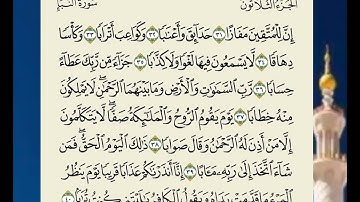 الجزء الثلاثون سورة النبإ
إِنَّ لِلْمُتَّقِينَ مَفَازًا ٣١ حَدَآئِقَ وَأَعْنَٰبًا ٣٢ وَكَوَاعِبَ أَتْرَابًا ٣٣ وَكَأْسًا
دِهَاقًا ٣٤ لَّا يَسْمَعُونَ فِيهَا لَغْوًا وَلَا كِذَّٰبًا ٣٥ جَزَآءً مِّن رَّبِّكَ عَطَآءً
حِسَابًا ٣٦ رَّبِّ ٱلسَّمَٰوَٰتِ وَٱلْأَرْضِ وَمَا بَيْنَهُمَا ٱلرَّحْمَٰنِ لَا يَمْلِكُونَ
مِنْهُ خِطَابًا ٣٧ يَوْمَ يَقُومُ ٱلرُّوحُ وَٱلْمَلَٰٓئِكَةُ صَفًّا لَّا يَتَكَلَّمُونَ
إِلَّا مَنْ أَذِنَ لَهُ ٱلرَّحْمَٰنُ وَقَالَ صَوَابًا ٣٨ ذَٰلِكَ ٱلْيَوْمُ ٱلْحَقُّ فَمَن
شَآءَ ٱتَّخَذَ إِلَىٰ رَبِّهِۦ مَـَٔابًا ٣٩ إِنَّآ أَنذَرْنَٰكُمْ عَذَابًا قَرِيبًا يَوْمَ يَنظُرُ
ٱلْمَرْءُ مَا قَدَّمَتْ يَدَاهُ وَيَقُولُ ٱلْكَافِرُ يَٰلَيْتَنِى كُنتُ تُرَٰبًۢا ٤٠